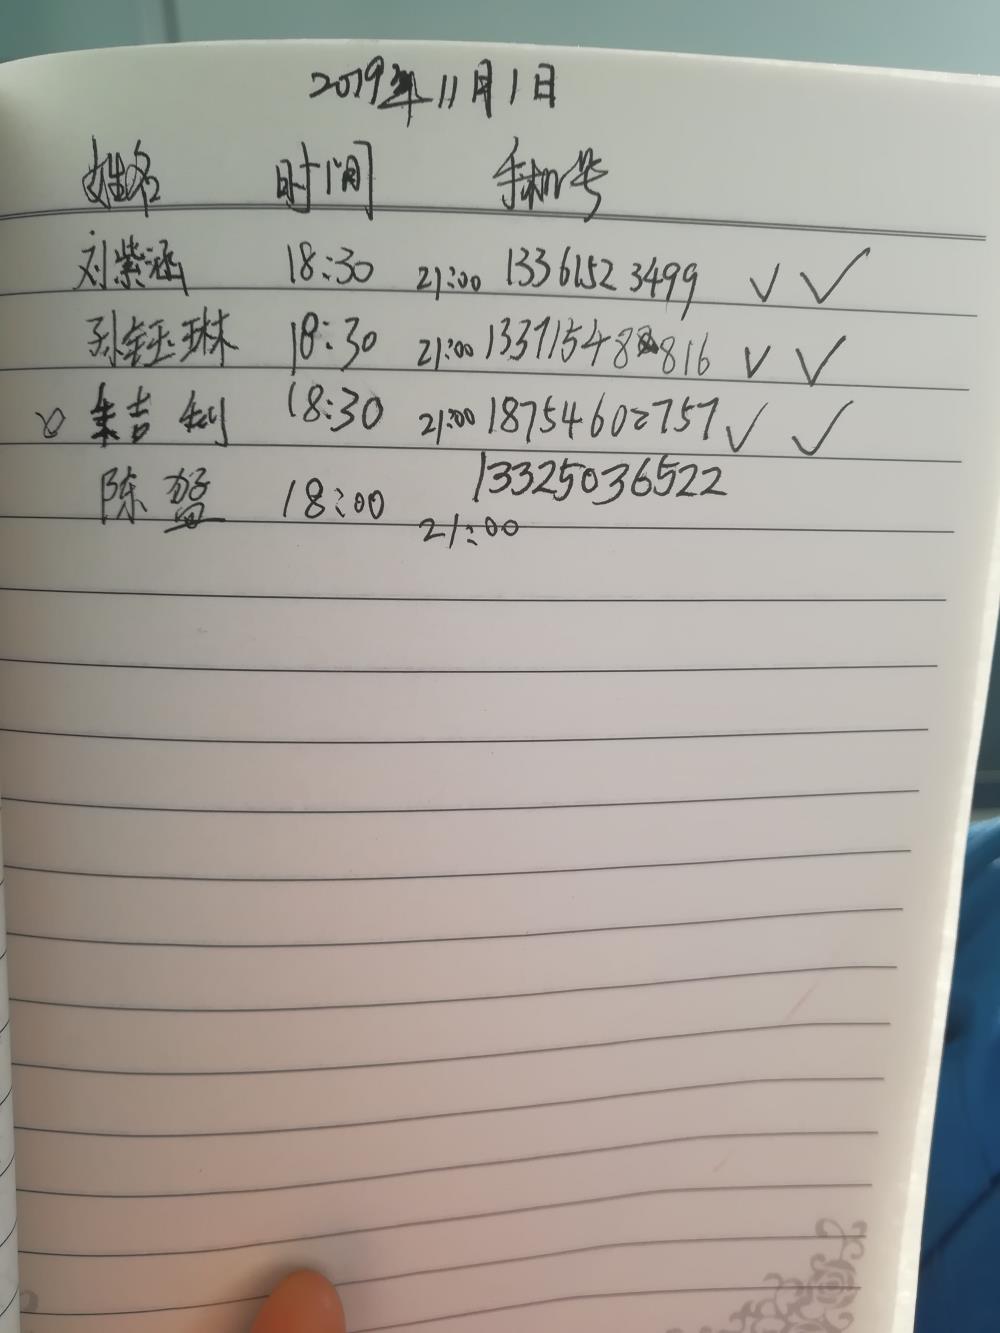 2019年11月1日
姓名 时间 手机号
刘紫涵 18:30 21:00 13361523499 ✓ ✓
孙钰琳 18:30 21:00 13371548816 ✓ ✓
朱吉利 18:30 21:00 18754602757 ✓ ✓
陈 18:00 21:00 13325036522